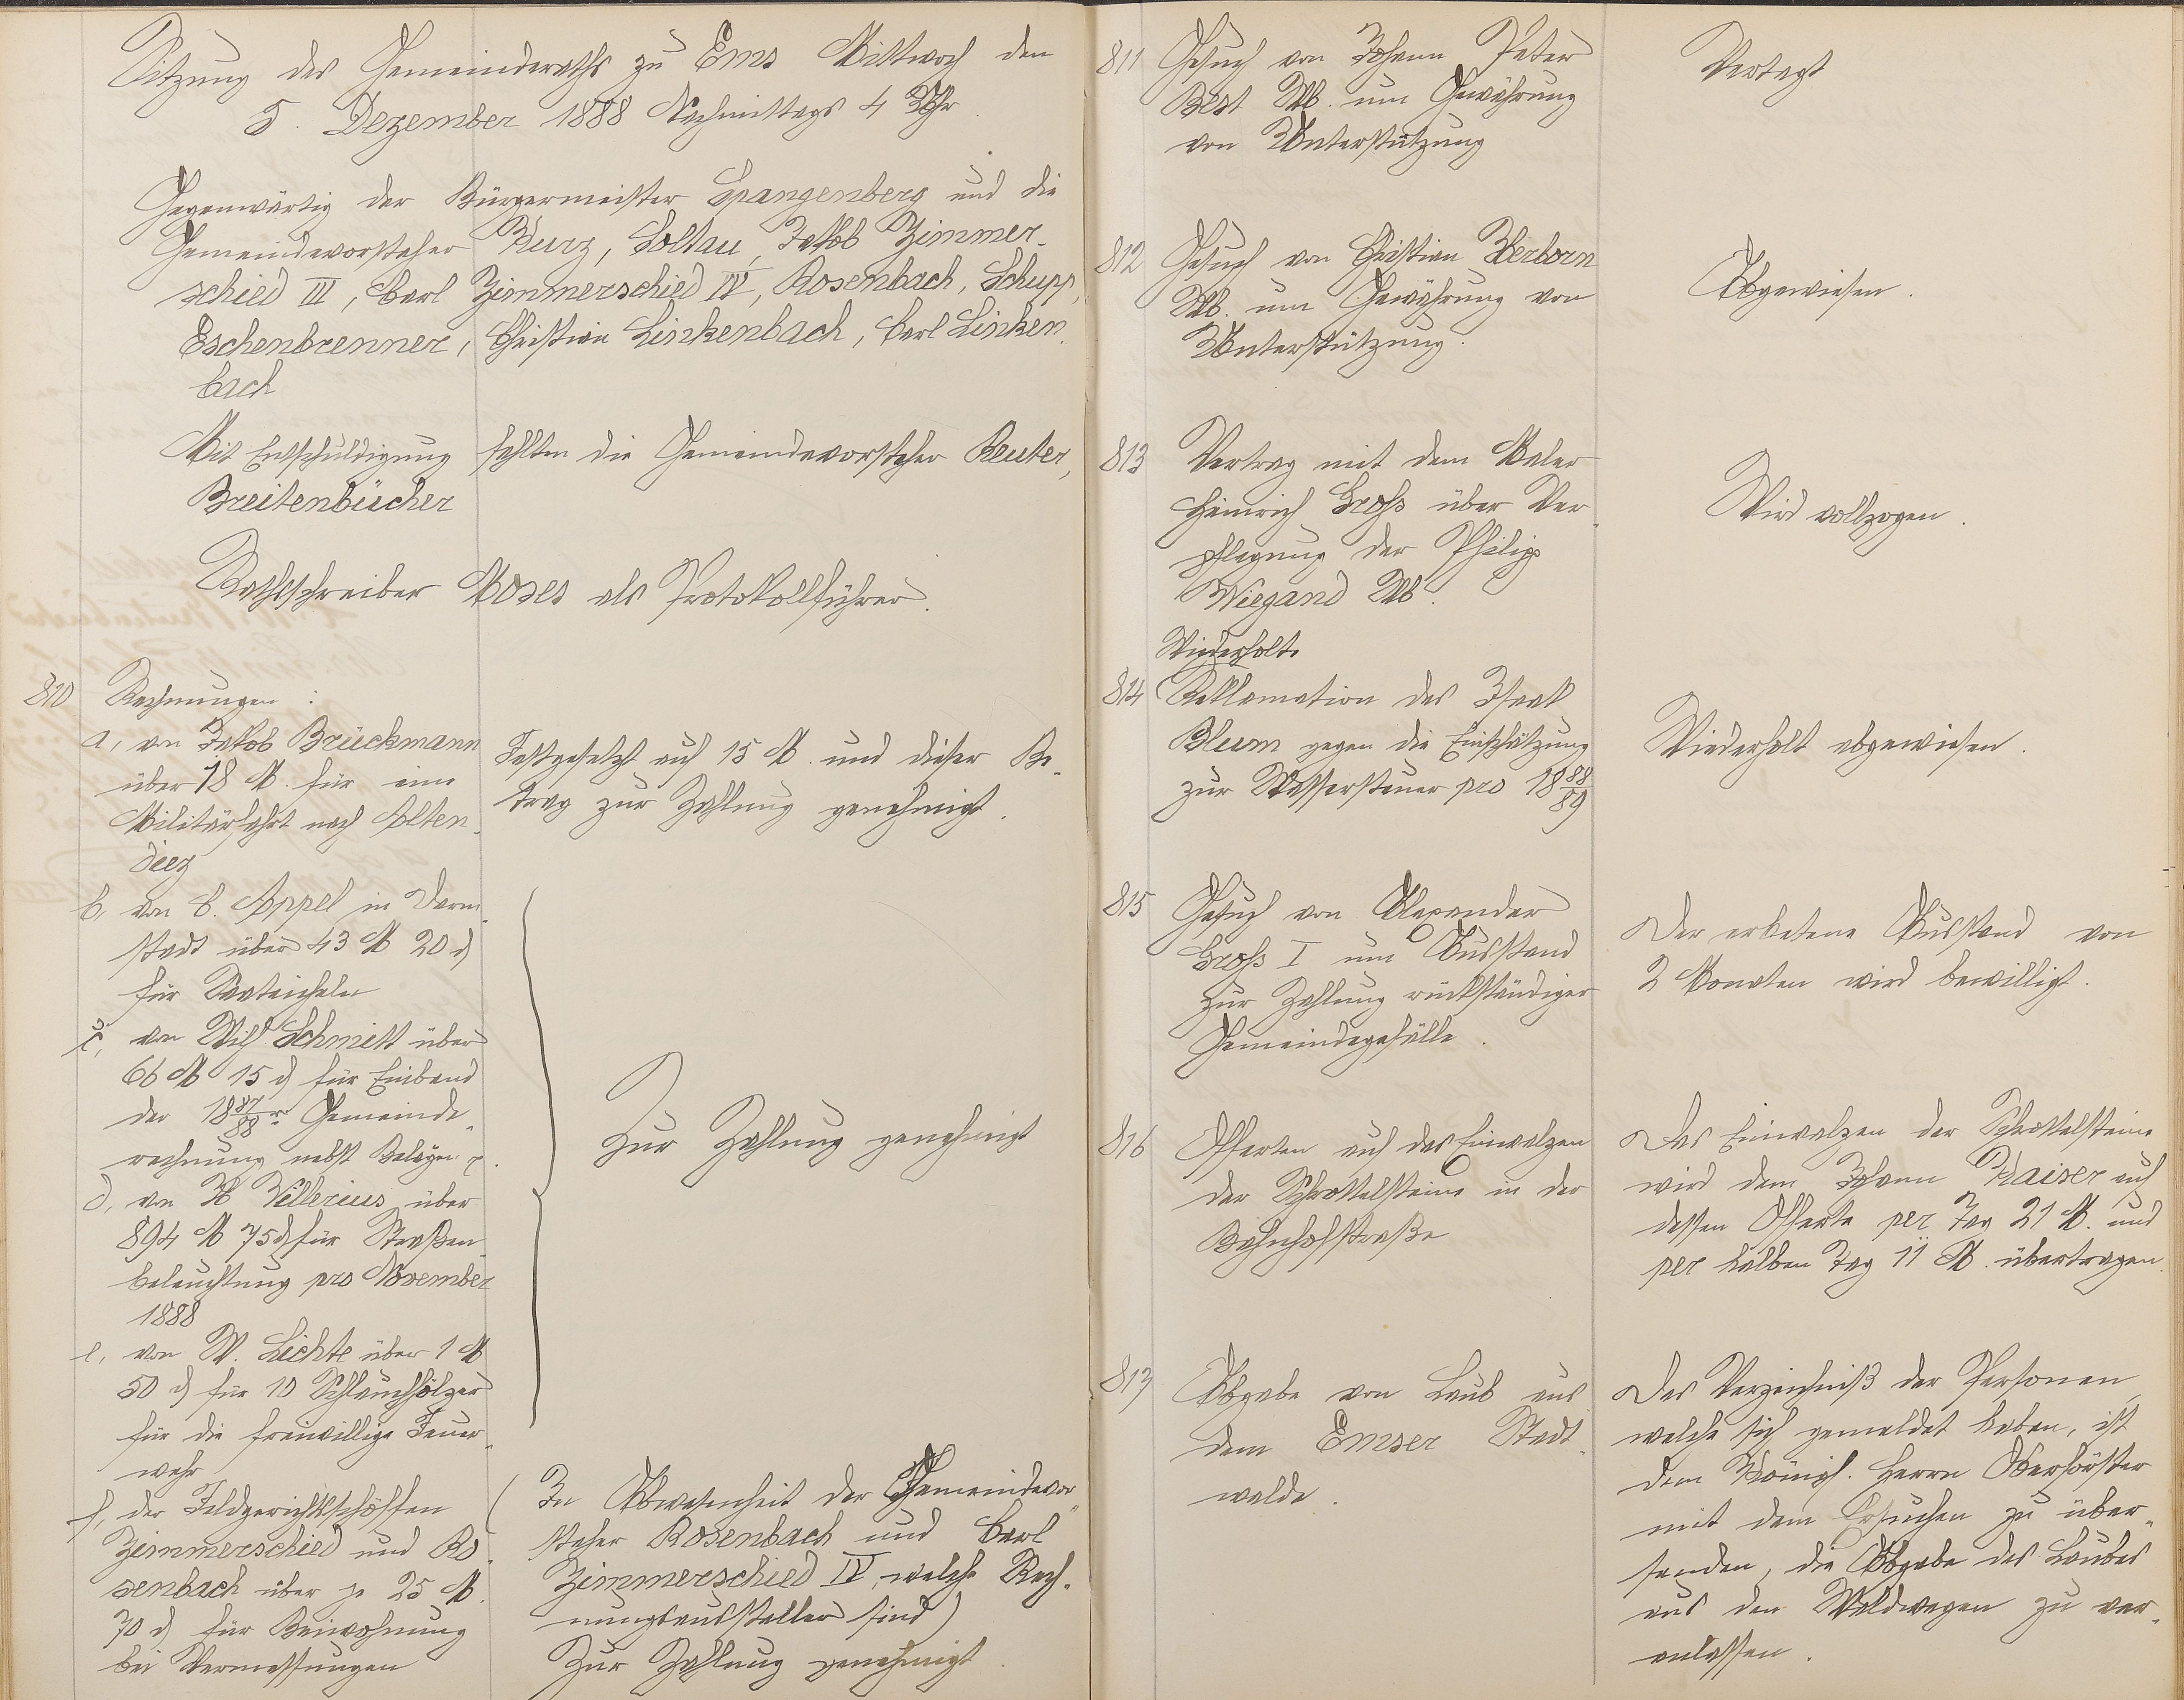 Sitzung des Gemeinderaths zu Ems Mittwoch den
5. Dezember 1888 Nachmittags 4 Uhr
Gegenwärtig der Bürgermeister Spangenberg und die
Gemeindevorsteher Kurz, Soltau, Jakob Zimmer-
schied III, Carl Zimmerschied IV, Rosenbach, Schupp,
Eschenbrenner, Christian Linkenbach, Carl Linken-
bach
Mit Entschuldigung fehlten die Gemeindevorsteher Reuter,
Breitenbücher
Rathschreiber Moses als Protokollführer.
810 Rechnungen:
a, von Jakob Brückmann
über 18 M. für eine
Militärfahrt nach Alten-
diez
Festgesetzt auf 15 M. und dieser Be-
trag zur Zahlung genehmigt.
b, von C. Appel in Darm-
stadt über 43 M 20 d
für Saateicheln
c, von Wilh Schmitt über
66 M 15 d für Einband
der 1887/88r Gemeinde-
rechnung nebst Belägen
d, von H Villerius über
894 M 75 d für Straßen-
beleuchtung pro November
1888
e, von W. Lichte über 1 M
50 d für 10 Schlauchhölzer
für die freiwillige Feuer-
wehr
Zur Zahlung genehmigt
f, der Feldgerichtsschöffen
Zimmerschied und Ro-
senbach über je 25 M.
70 d für Beiwohnung
bei Vermessungen
(In Abwesenheit der Gemeindevor-
steher Rosenbach und Carl
Zimmerschied IV, welche Rech-
nungsaussteller sind)
Zur Zahlung genehmigt.
811 Gesuch von Johann Peter
Best Wb. um Gewährung
von Unterstützung
Vertagt
812 Gesuch von Christian Herborn
Wb. um Gewährung von
Unterstützung.
Abgewiesen.
813 Vertrag mit dem Maler
Heinrich Groß über Ver-
pflegung der Philipp
Wiegand Wb.
Wird vollzogen.
Wiederholte
814 Reklamation des Isaak
Blum gegen die Einschätzung
zur Wassersteuer pro 1888/89
Wiederholt abgewiesen.
815 Gesuch von Alexander
Groß I um Ausstand
zur Zahlung rückständiger
Gemeindegefälle.
Der erbetene Ausstand von
2 Monaten wird bewilligt.
816 Offerten auf das Einwalzen
der Schottelsteine in der
Bahnhofstraße
Das Einwalzen der Schottelsteine
wird dem Johann Kaiser auf
dessen Offerte per Tag 21 M. und
per halben Tag 11 M. übertragen.
817 Abgabe von Laub aus
dem Emser Stadt-
walde.
Das Verzeichniß der Personen,
welche sich gemeldet haben, ist
dem Königl. Herrn Oberförster
mit dem Ersuchen zu über-
senden, die Abgabe des Laubes
aus den Waldwegen zu ver-
anlassen.